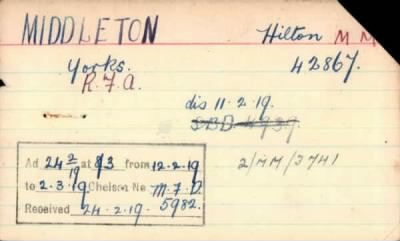 MIDDLETON Hilton M M
Yorks. 42867.
R.F.A.
dis 11.2.19.
SBD 4939.
2/MM/3741
Ad 24 2/19 at 8/3 from 12.2.19
to 2.3.19 Chelsea No M.F.D.
Received 24.2.19. 5982.